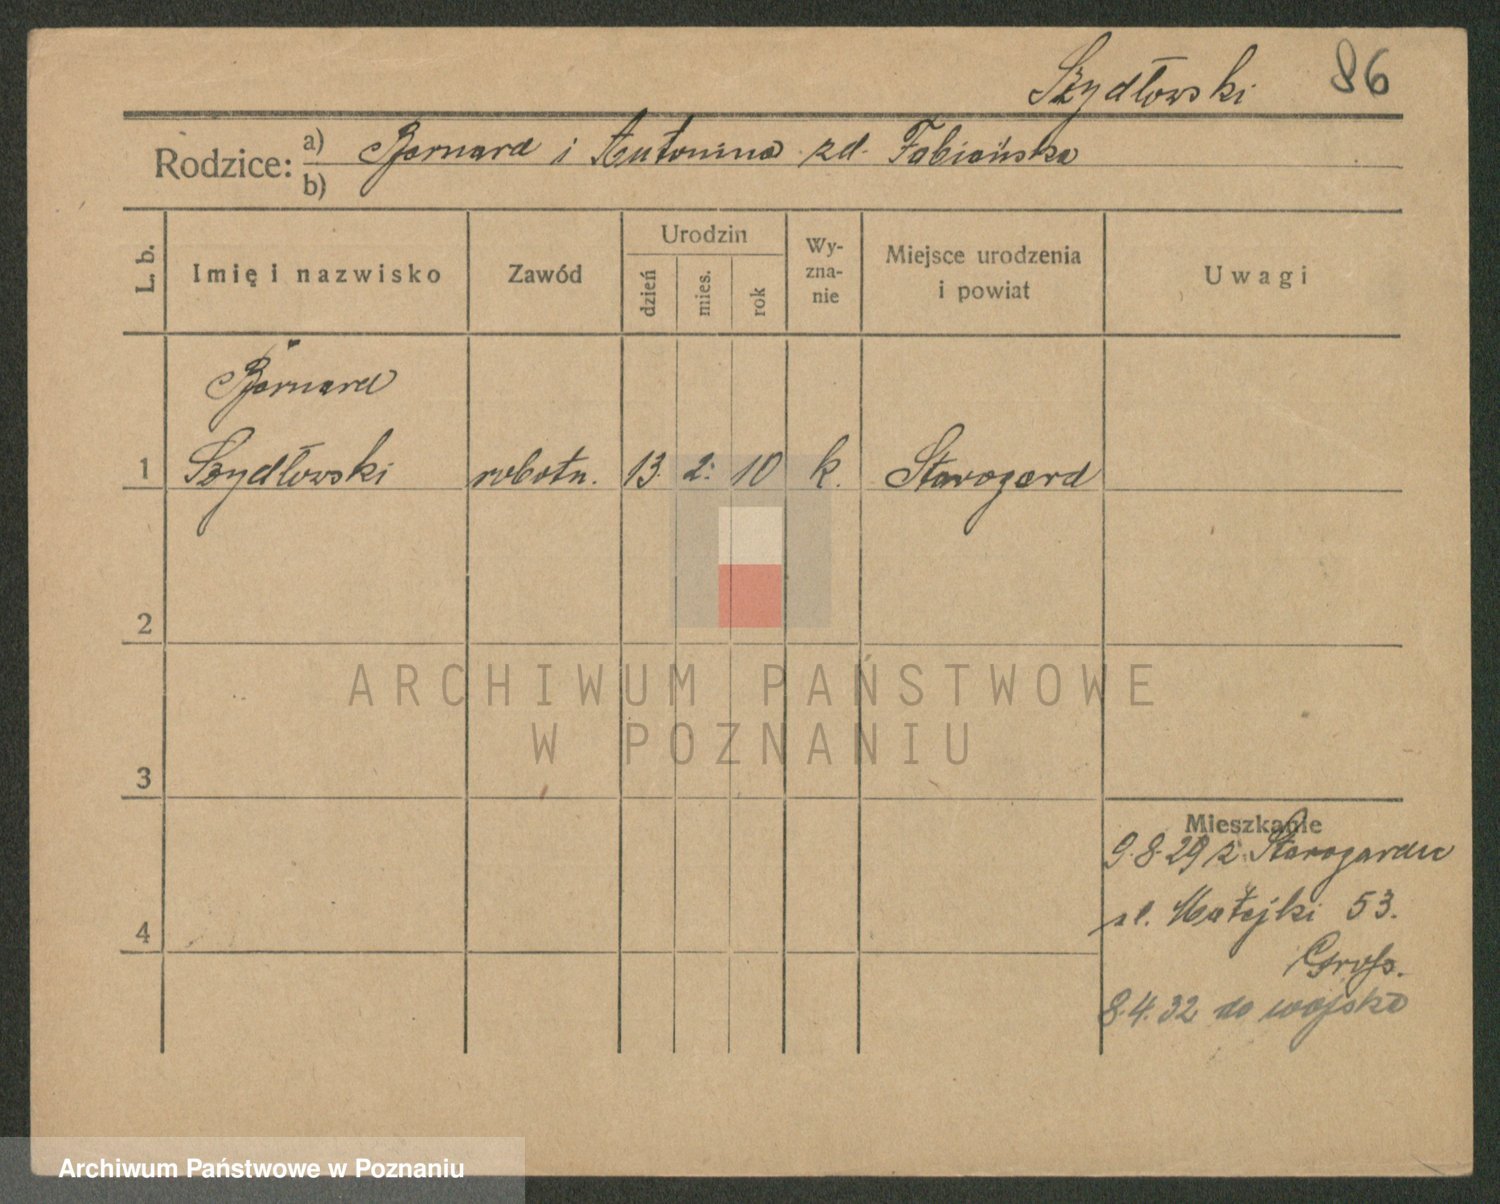 Szydłowski 86
Rodzice: a) Bernard i Antonina zd. Fabiańska
b)
L. b. Imię i nazwisko Zawód Urodzin dzień mies. rok Wy-zna-nie Miejsce urodzenia i powiat Uwagi
Bernard
1 Szydłowski robotn. 13. 2. 10 k. Starogard
2
ARCHIWUM PAŃSTWOWE
W POZNANIU
3
Mieszkanie
9.8.29 z Starogardu
ul. Matejki 53.
4
Gross.
8.4.32 do wojska
Archiwum Państwowe w Poznaniu